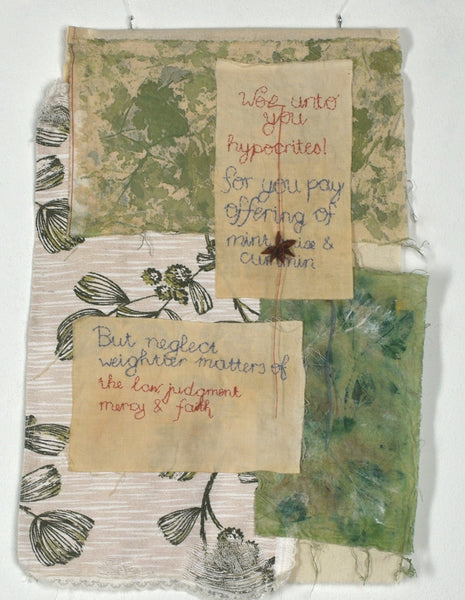 Woe unto
you
hypocrites!
for you pay
offering of
mint ise &
cummin
But neglect
weightier matters of
the law judgment
mercy & faith